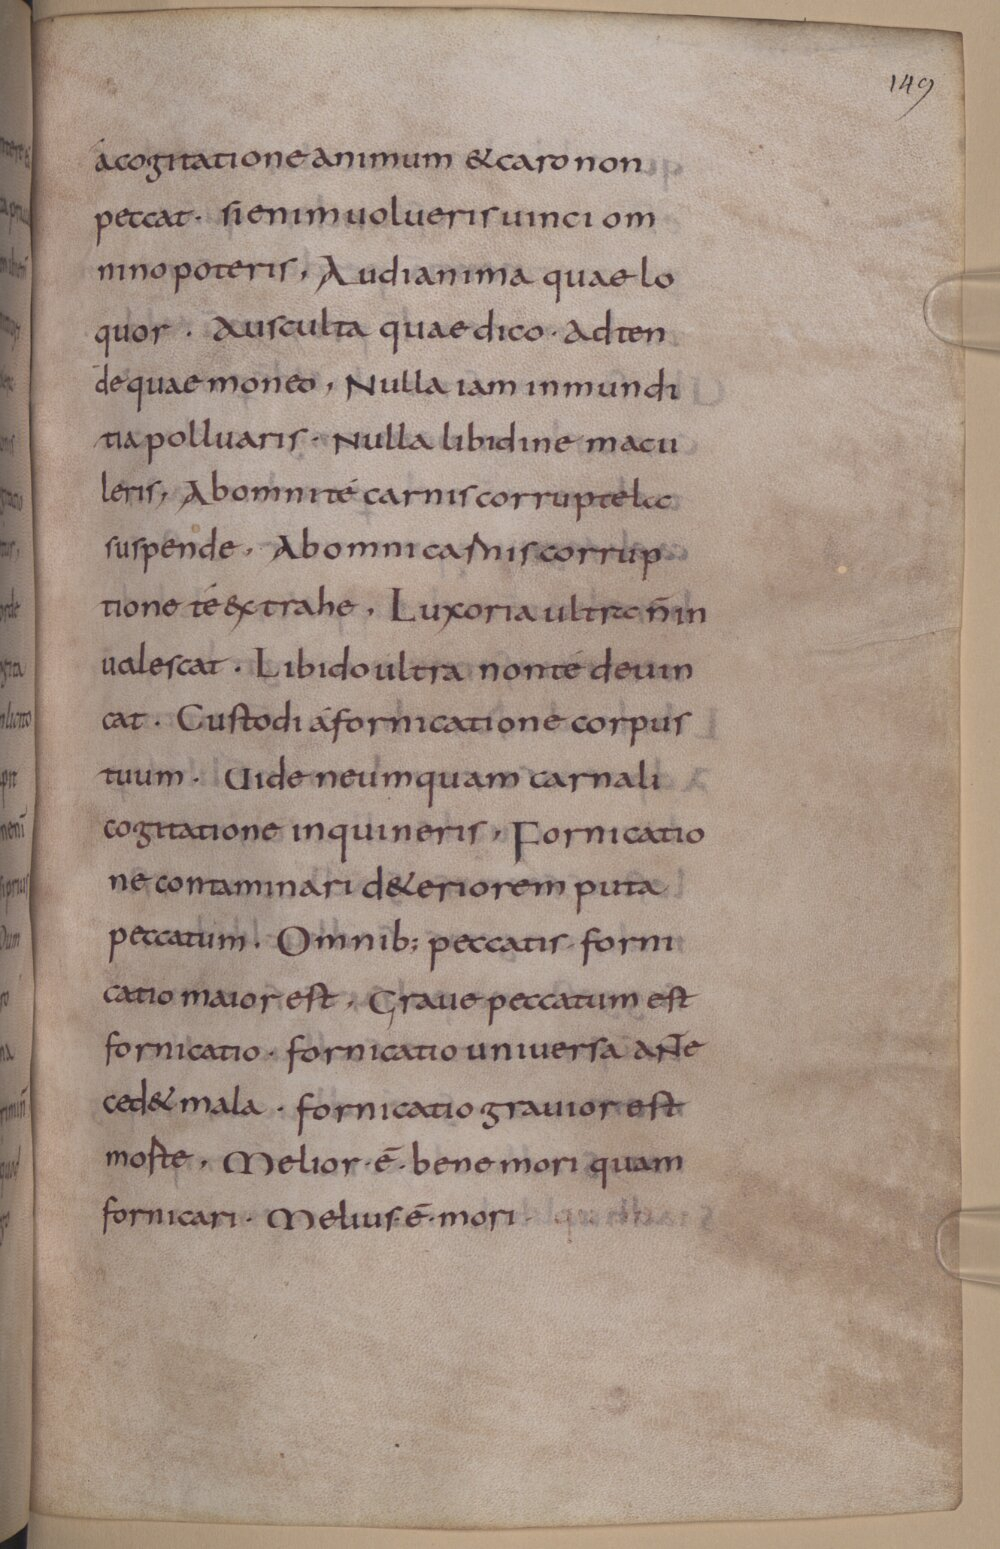 149
acogitatione animum & caro non
peccat · si enim uolueris uinci om
nino poteris, Audi anima quae lo
quor · Ausculta quae dico · Adten
de quae moneo, Nulla iam inmundi
tia polluaris · Nulla libidine macu
leris, Ab omni té carnis corruptela
suspende, Ab omni carnis corrup
tione té extrahe, Luxoria ultra n̄ in
ualescat · Libido ultra non té deuin
cat · Custodi á fornicatione corpus
tuum · Uide ne umquam carnali
cogitatione inquineris, Fornicatio
ne contaminari d&eriorem puta
peccatum. Omnib; peccatis forni
catio maior est, Graue peccatum est
fornicatio · fornicatio uniuersa ante
ced& mala · fornicatio grauior est
morte, Melior · ē · bene mori quam
fornicari · Melius · ē · mori